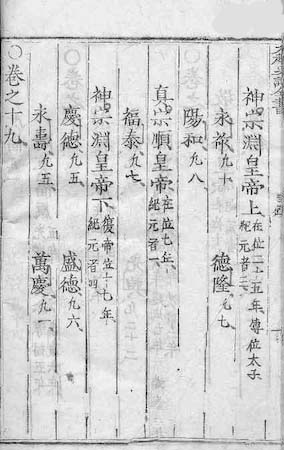 神宗淵皇帝上 在位二十五年傳位太子 紀元者三
永祚凡十 德隆凡七
陽和凡八
真宗順皇帝 在位七年 紀元者一
福泰凡七
神宗淵皇帝下 復帝位十七年 紀元者四
慶德凡五 盛德凡六
永壽凡五 萬慶凡一
○卷之十九